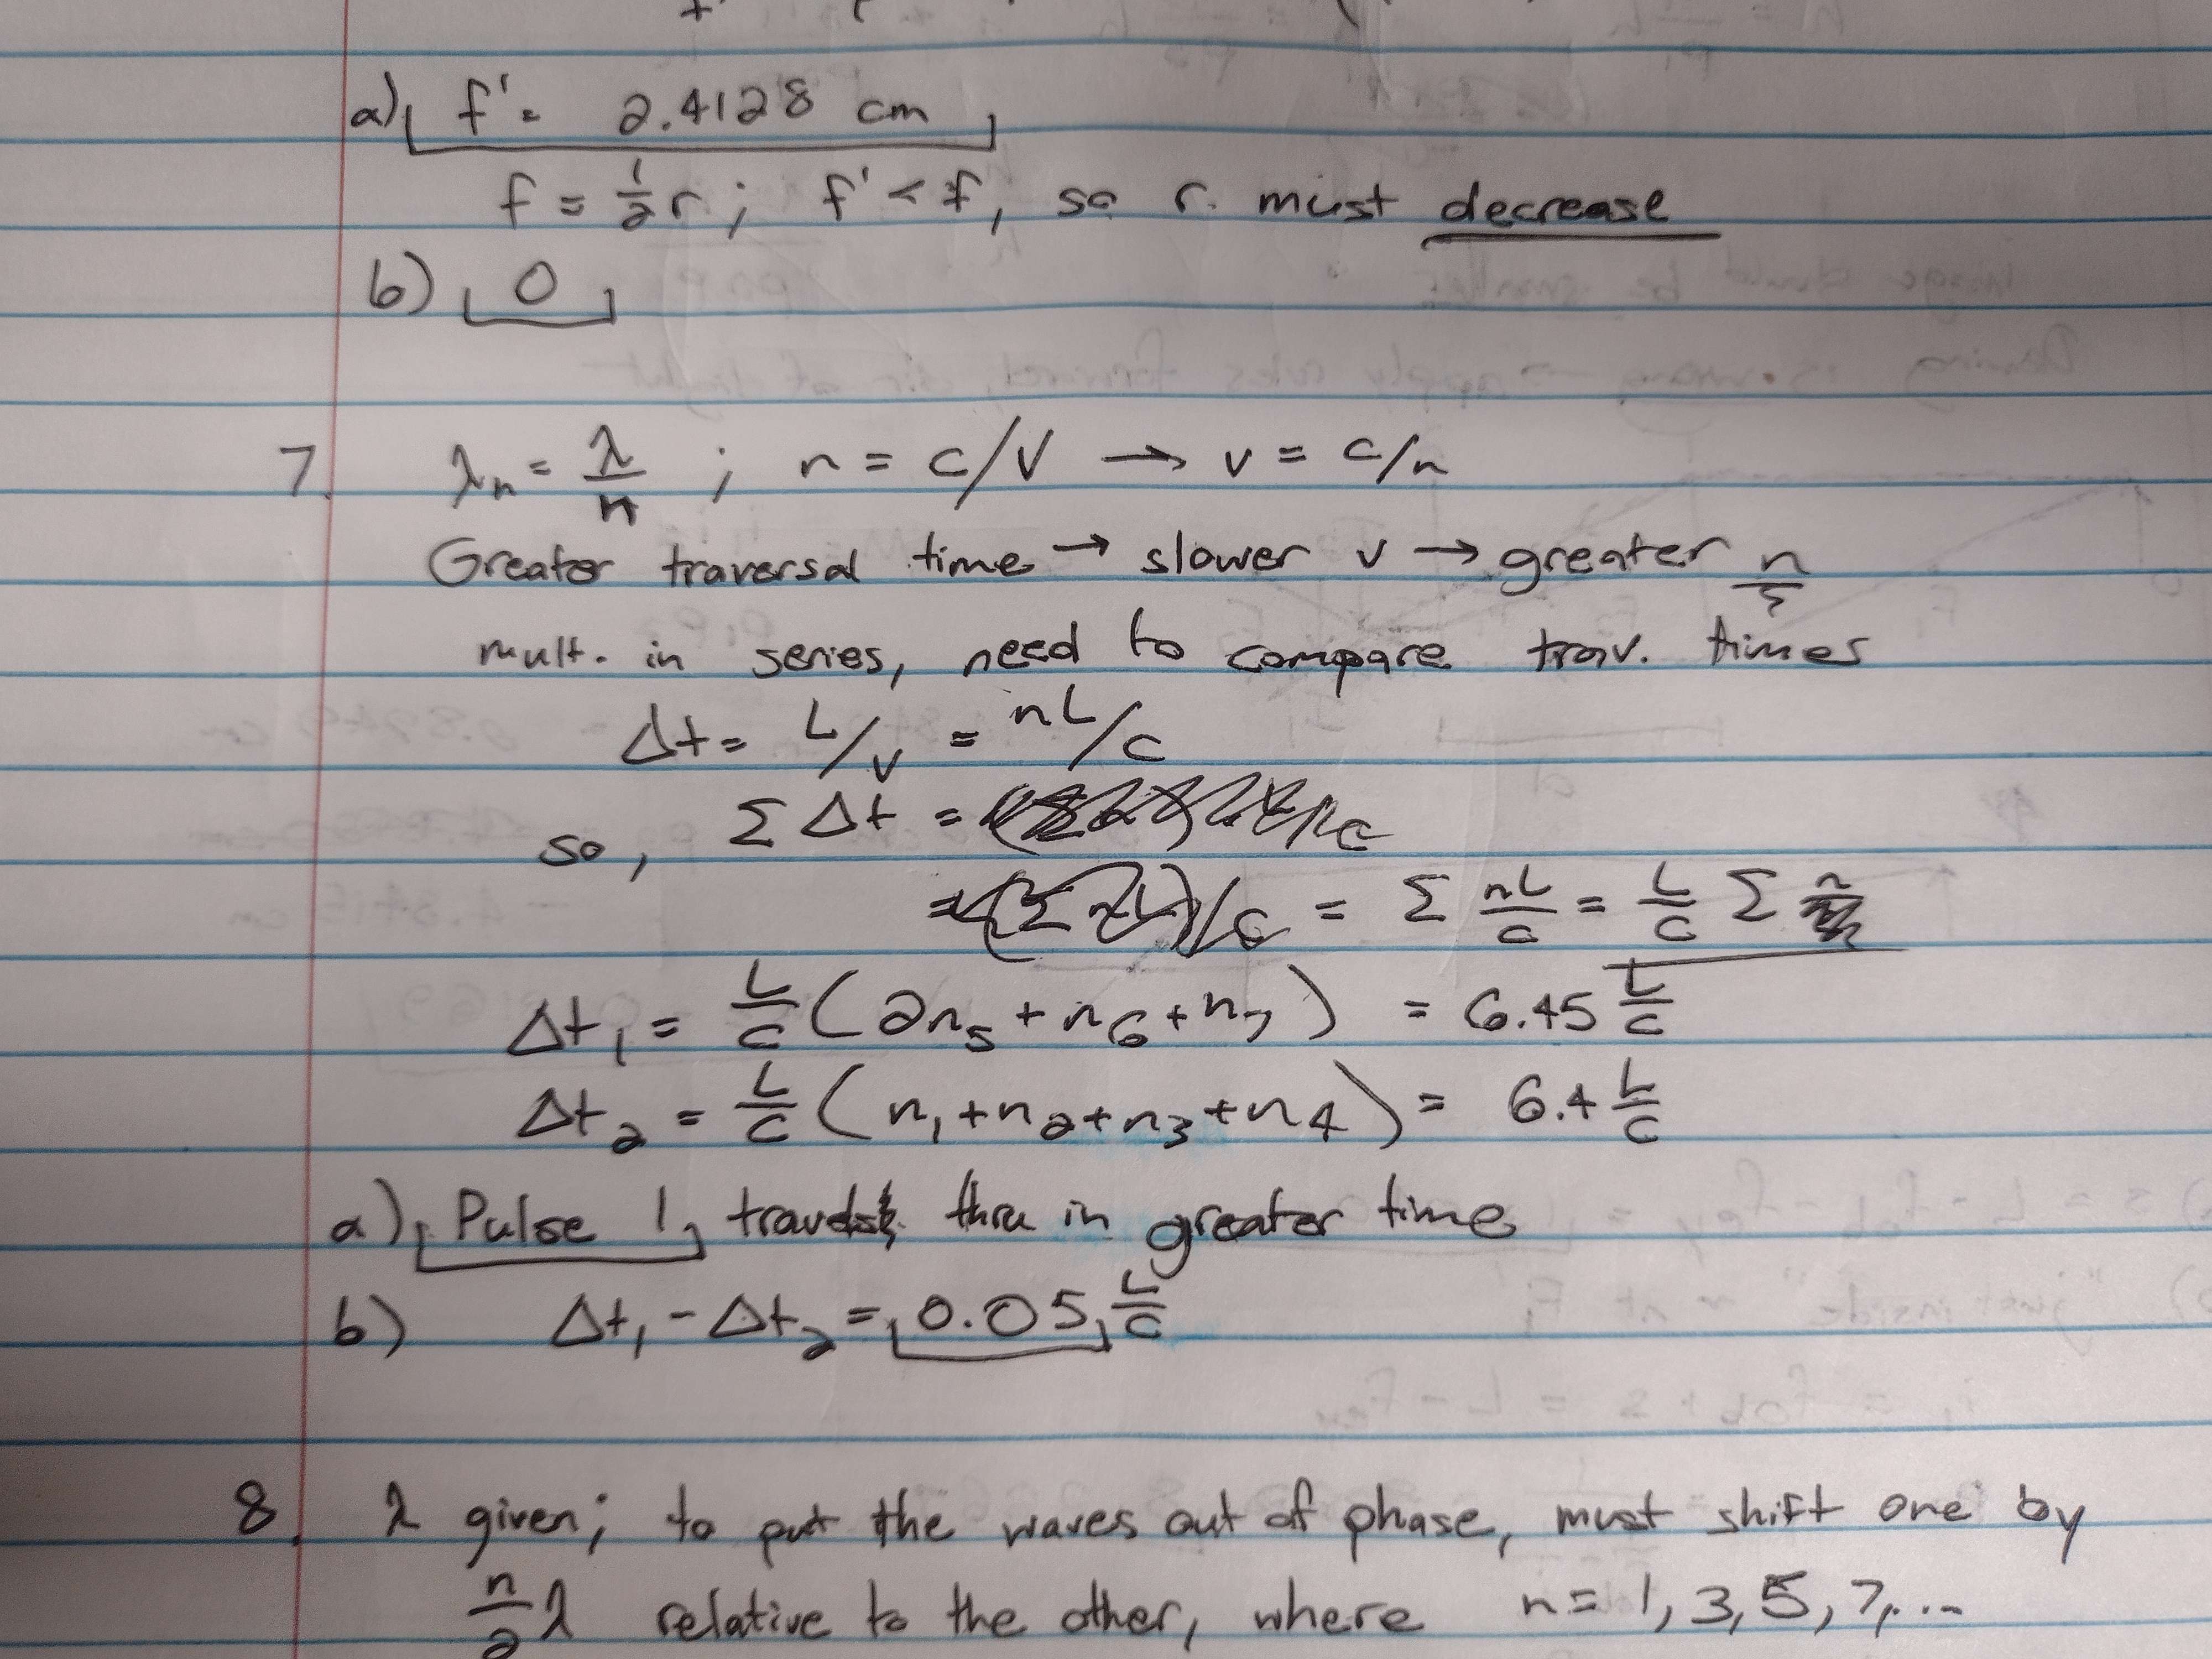 a) f' = 2.4128 cm
f = 1/2 r ; f' < f, so r must decrease
b) 0
7. λn = λ/n ; n = c/v → v = c/n
Greater traversal time → slower v → greater n
mult. in series, need to compare trav. times
Δt = L/v = nL/c
so, Σ Δt =
= Σ nL/c = L/c Σ n
Δt1 = L/c ( 2n5 + n6 + n7 ) = 6.45 L/c
Δt2 = L/c ( n1 + n2 + n3 + n4 ) = 6.4 L/c
a) Pulse 1, travels thru in greater time
b) Δt1 - Δt2 = 0.05 L/c
8. λ given; to put the waves out of phase, must shift one by
n/2 λ relative to the other, where n = 1, 3, 5, 7, ...